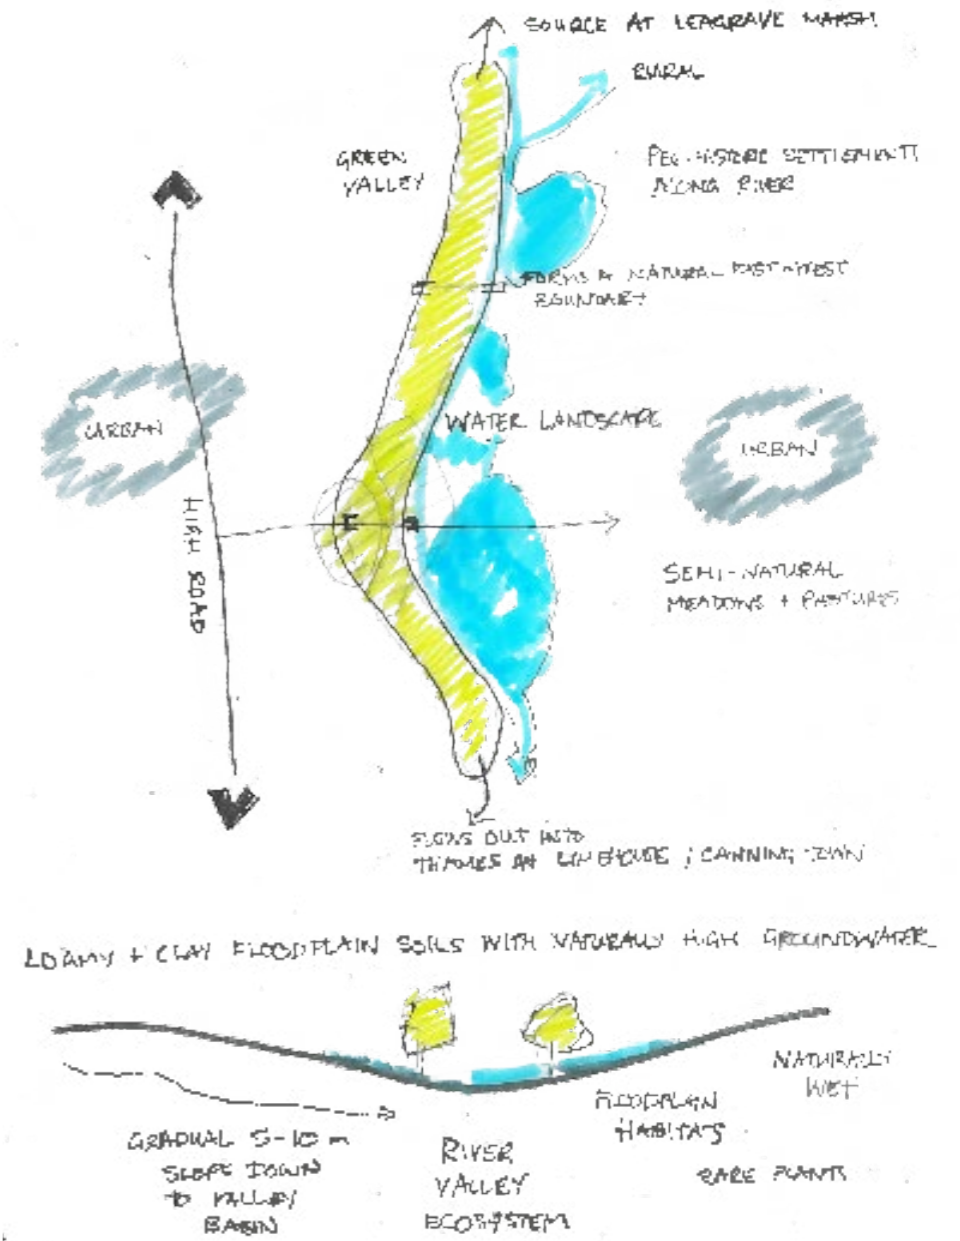 SOURCE AT LEAGRAVE MARSH
RURAL
GREEN
VALLEY
PRE-HISTORIC SETTLEMENTS
ALONG RIVER
FORMS A NATURAL EAST-WEST
BOUNDARY
URBAN
WATER LANDSCAPE
URBAN
HIGH ROAD
SEMI-NATURAL
MEADOWS + PASTURES
FLOWS OUT INTO
THAMES AT LIMEHOUSE / CANNING TOWN
LOAMY + CLAY FLOODPLAIN SOILS WITH NATURALLY HIGH GROUNDWATER
NATURALLY
WET
FLOODPLAIN
HABITATS
GRADUAL 5-10 m
SLOPE DOWN
TO VALLEY
BASIN
RIVER
VALLEY
ECOSYSTEM
RARE PLANTS